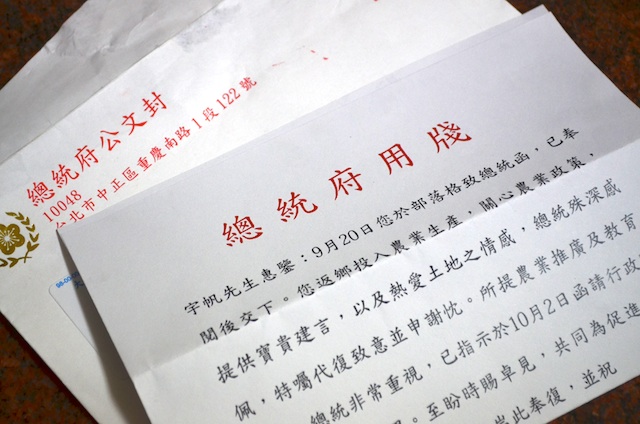 總統府公文封
10048
台北市中正區重慶南路1段122號
總統府用牋
宇帆先生惠鑒：9月20日您於部落格致總統函，已奉
閱後交下。您返鄉投入農業生產，關心農業政策，
提供寶貴建言，以及熱愛土地之情感，總統殊深感
佩，特囑代復致意並申謝忱。所提農業推廣及教育
總統非常重視，已指示於10月2日函請行政
至盼時賜卓見，共同為促進
奉復，並祝